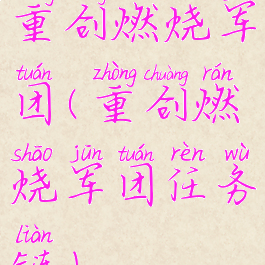 重创燃烧军
tuán zhòng chuàng rán
团(重创燃
shāo jūn tuán rèn wù
烧军团任务
liàn
链)